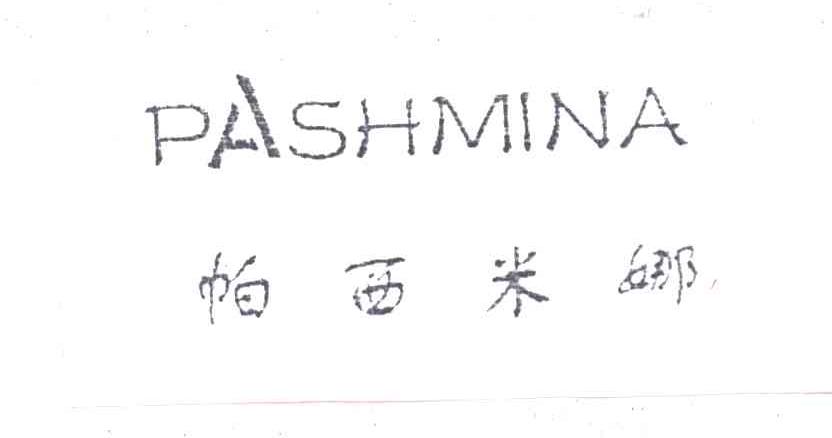 PASHMINA
帕西米娜